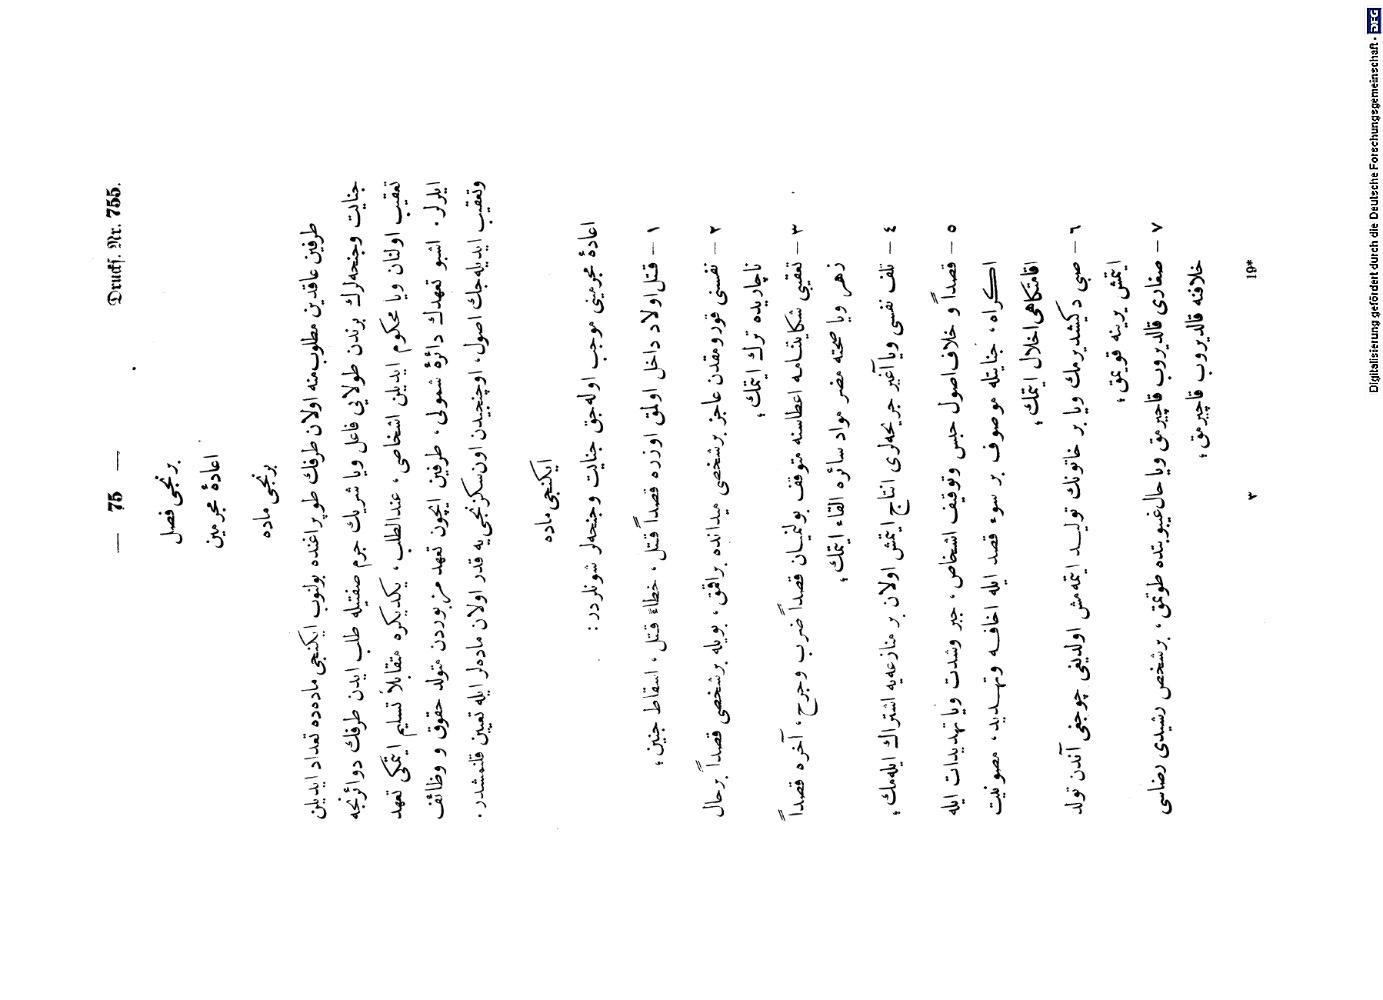 — 75 —
Druckf. Nr. 755.
برنجی فصل
اعادهٔ مجرمین
برنجی ماده
طرفین عاقدین مطلوب منه اولان طرفك طوپراغنده بولنوب ایكنجی ماده‌ده تعداد ایدیلن
جنایت وجنحه‌لرك برندن طولایی فاعل ویا شریك جرم صفتیله طلب ایدن طرفك دوائرنجه
تعقیب اولنان ویا محكوم ایدیلن اشخاصی، عندالطلب، یكدیكره متقابلاً تسلیم ایتمكی تعهد
ایلرلر. اشبو تعهدك دائرهٔ شمولی، طرفین ایچون تعهد مزبوردن متولد حقوق و وظائف
وتعقیب ایدیله‌جك اصول، اوچنجیدن اون سكزنجی‌یه قدر اولان ماده‌لر ایله تعیین قلنمشدر.
ایكنجی ماده
اعادهٔ مجرمینی موجب اوله‌جق جنایت وجنحه‌لر شونلردر:
١ — قتل اولاد داخل اولمق اوزره قصداً قتل، خطاءً قتل، اسقاط جنین؛
٢ — نفسنی قورومقدن عاجز برشخصی میدانده براقمق، بویله برشخصی قصداً برحال
ناچاریده ترك ایتمك؛
٣ — تعقیبی شكایتنامه اعطاسنه متوقف بولنمیان قصداً ضرب وجرح، آخره قصداً
زهر ویا صحته مضر مواد سائره القاء ایتمك؛
٤ — تلف نفسی ویا آغیر جریحه‌لری انتاج ایتمش اولان بر منازعه‌یه اشتراك ایله‌مك؛
٥ — قصداً و خلاف اصول حبس وتوقیف اشخاص، جبر وشدت ویا تهدیدات ایله
اكراه، جنایتله موصوف بر سوء قصد ایله اخافه وتهدید، مصونیت
اقامتكاهی اخلال ایتمك؛
٦ — صبی دكیشدیرمك ویا بر خاتونك تولید ایتمه‌مش اولدیغی چوجغی آندن تولد
ایتمش یرینه قویمق؛
٧ — صغاری قالدیروب قاچیرمق ویا حال غیبوبتده طوتمق، برشخص رشیدی رضاسی
خلافنه قالدیروب قاچیرمق؛
٣
19*
Digitalisierung gefördert durch die Deutsche Forschungsgemeinschaft - DFG